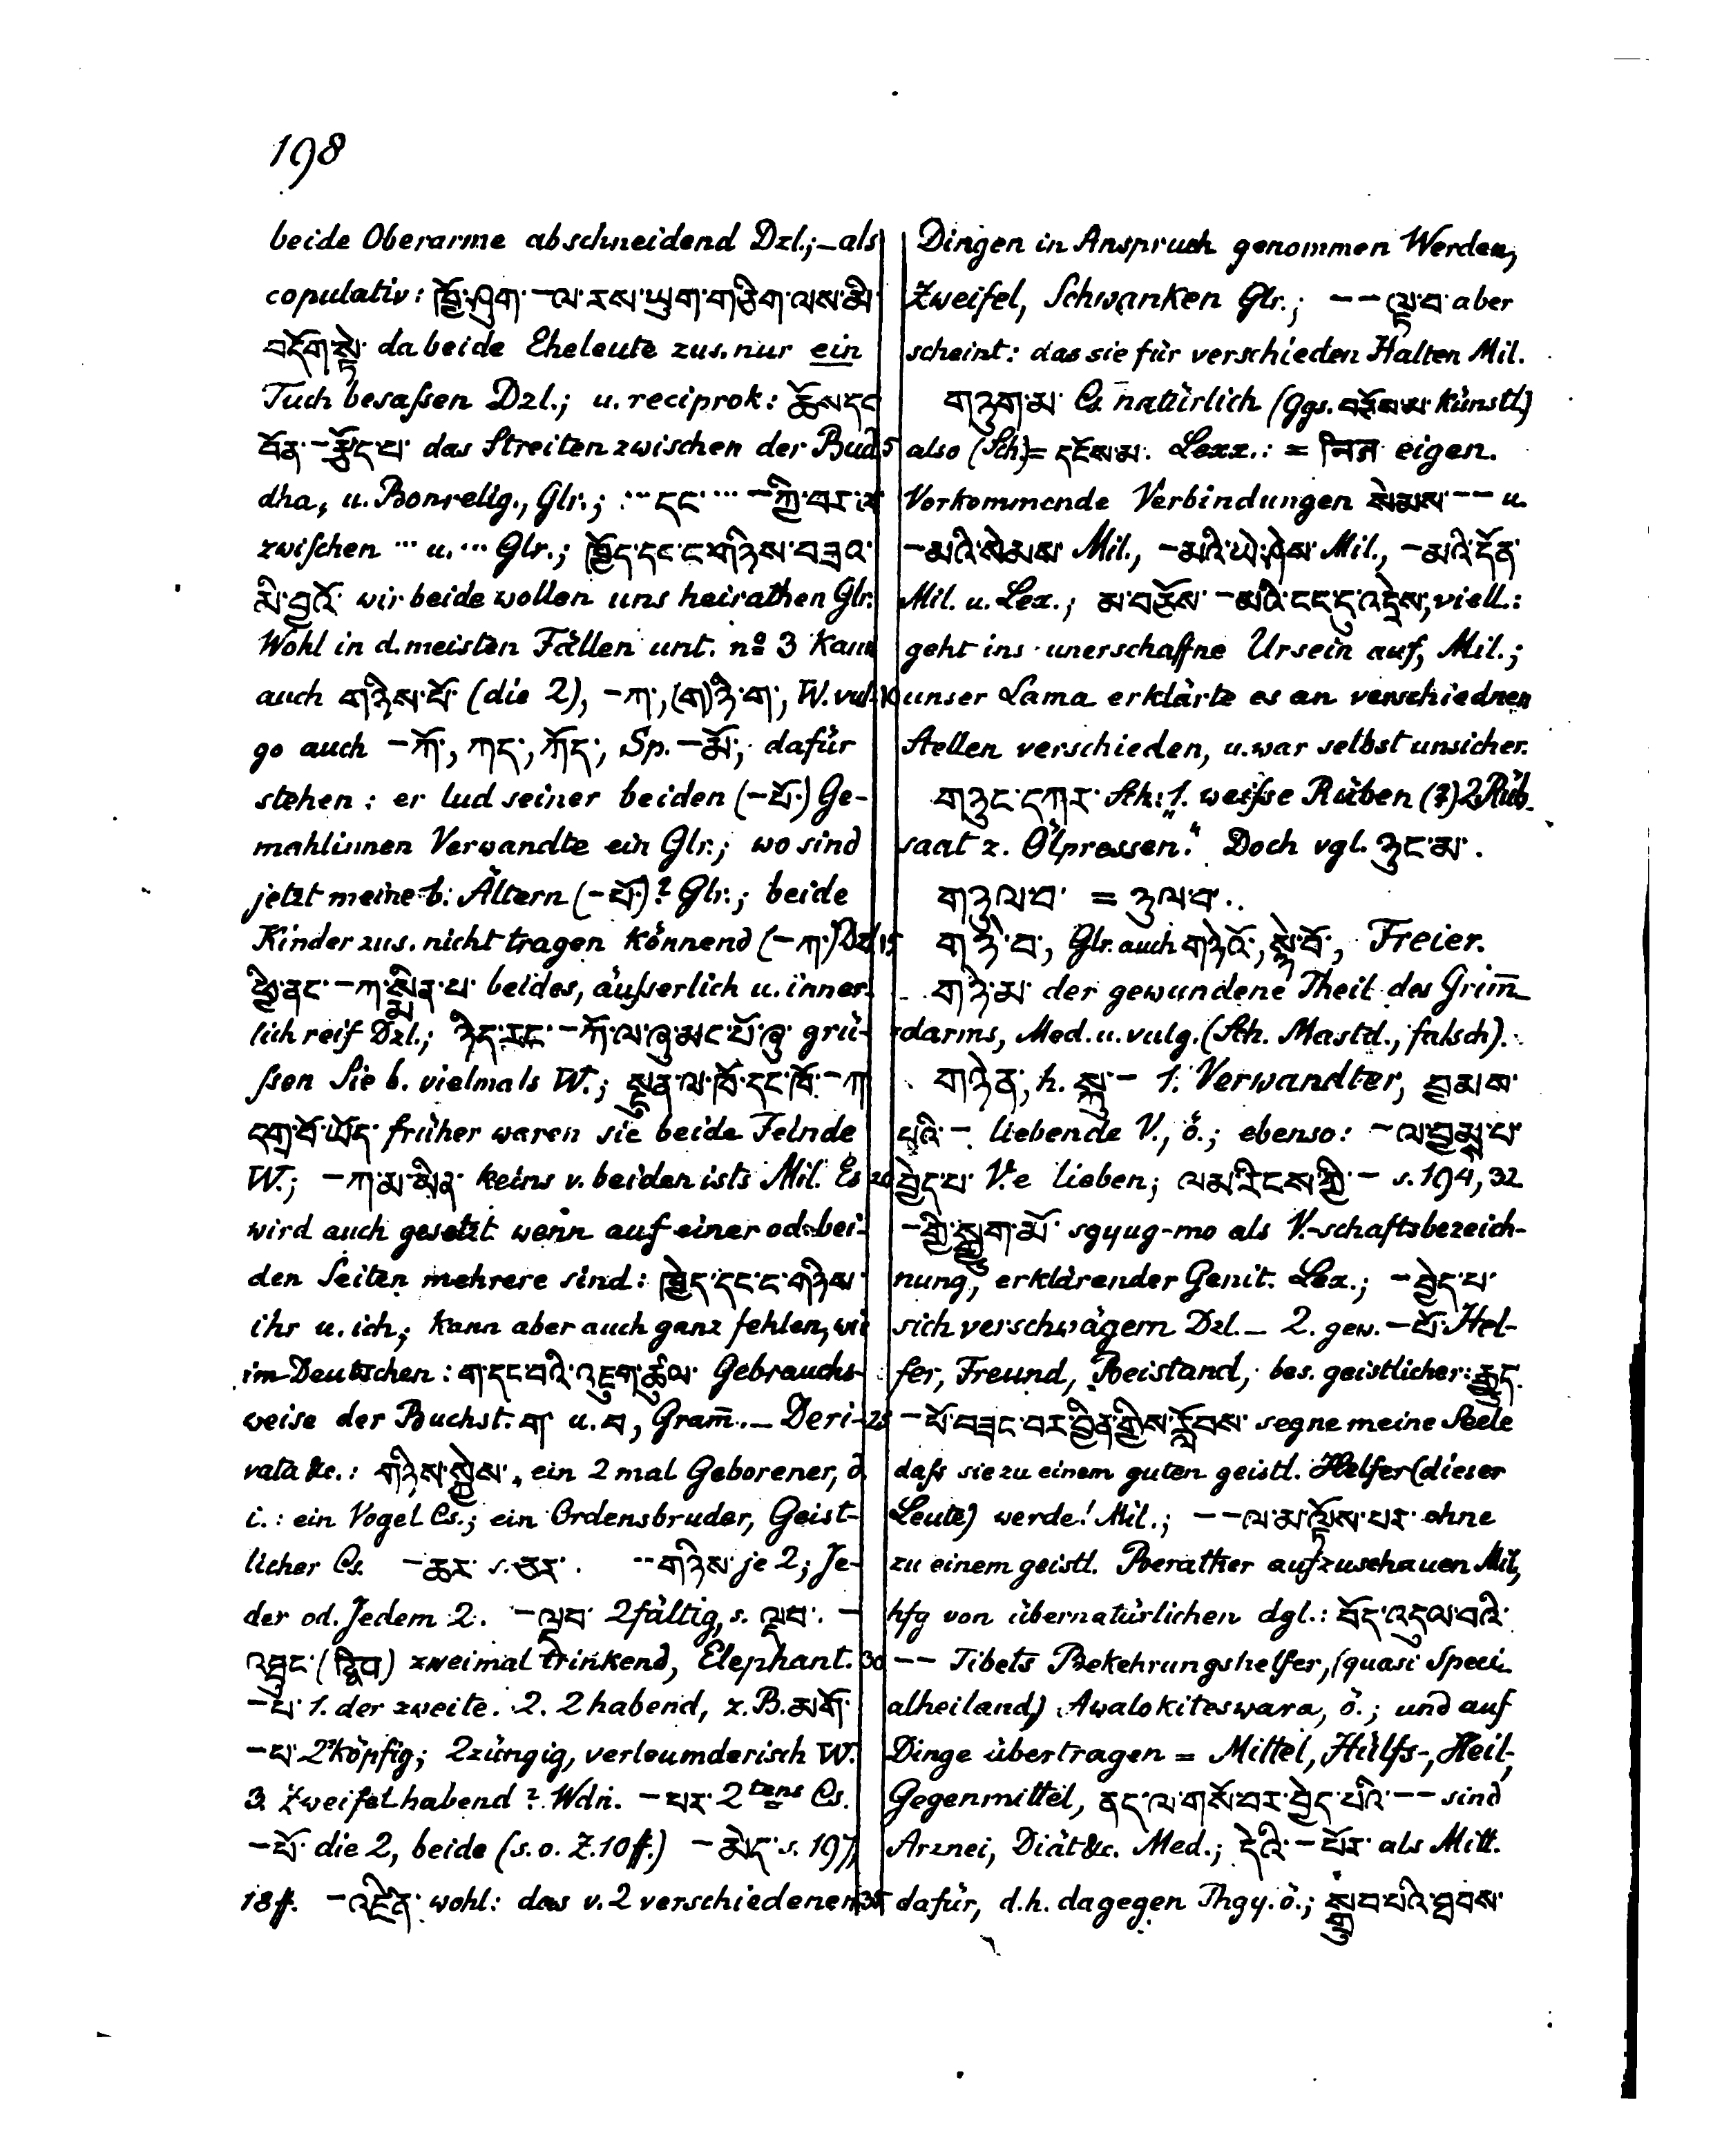 198
beide Oberarme abschneidend Dzl.; – als
copulativ: ཁྱོ་ཤུག་ – ལ་རས་ཡུག་གཅིག་ལས་མི་
བདོག་སྟེ་ da beide Eheleute zus. nur ein
Tuch besaßen Dzl.; u. reciprok: ཆོས་དང་
བོན་ – རྩོད་པ་ das Streiten zwischen der Bud-
dha, u. Bonrelig., Glr.; ... དང་ ... – ཀྱི་བར་ལ་
zwischen ... u. ... Glr.; ཁྱོད་དང་ང་གཉིས་བཟའ་
མི་བྱའོ་ wir beide wollen uns heirathen Glr.
Wohl in d. meisten Fällen unt. nº 3 kann
auch གཉིས་པོ་ (die 2), – ཀ་, (ག)ཉི་ག་, W. vul-
go auch – ཀོ་, ཀད་, ཀོད་, Sp. – མོ་, dafür
stehen: er lud seiner beiden (– པོ་) Ge-
mahlinnen Verwandte ein Glr.; wo sind
jetzt meine b. Ältern (– པོ་)? Glr.; beide
Kinder zus. nicht tragen könnend (– ཀ་) Dzl.
ཕྱི་ནང་ – ཀ་སྨིན་པ་ beides, äußerlich u. inner-
lich reif Dzl.; ཉིད་རང་ – ཀོ་ལ་ཞུ་མང་པོ་ཞུ་ grü-
ßen Sie b. vielmals W.; སྔུན་ལ་ཁོ་དང་ཁོ་ – ཀ
དགྲ་བོ་ཡོད་ früher waren sie beide Feinde
W.; – ཀ་མ་ཡིན་ keins v. beiden ists Mil. Es
wird auch gesetzt wenn auf einer od. bei-
den Seiten mehrere sind: ཁྱེད་དང་ང་གཉིས་
ihr u. ich; kann aber auch ganz fehlen, wie
im Deutschen: ག་དང་བའི་འཇུག་ཚུལ་ Gebrauchs-
weise der Buchst. ག u. བ, Gram̄. – Deri-
vata &c.: གཉིས་སྐྱེས་, ein 2 mal Geborener, d.
i.: ein Vogel Cs.; ein Ordensbruder, Geist-
licher Cs. – ཆར་ s. ཆར་. ·· གཉིས་ je 2; Je-
der od. Jedem 2. – ལྡབ་ 2fältig, s. ལྡབ་. –
འཐུང་ (द्विप) zweimal trinkend, Elephant.
– པ་ 1. der zweite. 2. 2 habend, z.B. མགོ་
– པ་ 2köpfig; 2züngig, verleumderisch W.
3. Zweifel habend? Wdn. – པར་ 2tens Cs.
– པོ་ die 2, beide (s. o. Z. 10 ff.) – མེད་ s. 197,
18 ff. – འཛིན་ wohl: das v. 2 verschiedenen
Dingen in Anspruch genommen Werden,
Zweifel, Schwanken Glr.; – – ལྟ་བ་ aber
scheint: das sie für verschieden Halten Mil.
གཉུག་མ་ Cs. natürlich (Ggs. བཅོས་མ་ künstl.)
also (Sch.) = དངོས་མ་. Lexx.: = निज eigen.
Vorkommende Verbindungen སེམས་ – – u.
– མའི་སེམས་ Mil., – མའི་ཡེ་ཤེས་ Mil., – མའི་དོན་
Mil. u. Lex.; མ་བཅོས་ – མའི་ངང་དུ་འདྲེས་, viell.:
geht ins unerschaffne Ursein auf, Mil.;
unser Lama erklärte es an verschiednen
Stellen verschieden, u. war selbst unsicher.
གཉུང་དཀར་ Sch.: 1. „weiße Rüben (?) 2. Rüb-
saat z. Ölpressen.“ Doch vgl. ཉུང་མ་.
གཉུལ་བ་ = ཉུལ་བ་.
གཉེ་བ་, Glr. auch གཉེའོ་, སྙེ་བོ་, Freier.
གཉེ་མ་ der gewundene Theil des Grim̄-
darms, Med. u. vulg. (Sch. Mastd., falsch).
གཉེན་, h. སྐུ་ – 1. Verwandter, བྱམས་
པའི་ – liebende V., ö.; ebenso: – ལ་བྱམས་པ་
བྱེད་པ་ V.e lieben; ལམ་རིངས་ཀྱི་ – s. 194, 32.
– གྱི་སྒྱུག་མོ་ sgyug-mo als V.-schaftsbezeich-
nung, erklärender Genit. Lex.; – བྱེད་པ་
sich verschwägern Dzl. – 2. gew. – པོ་ Hel-
fer, Freund, Beistand, bes. geistlicher: རྒྱུད་
– པོ་བཟང་བར་བྱིན་གྱིས་རློབས་ segne meine Seele
daß sie zu einem guten geistl. Helfer (dieser
Leute) werde! Mil.; – – ལ་མ་ལྟོས་པར་ ohne
zu einem geistl. Berather aufzuschauen Mil.,
hfg von übernatürlichen dgl.: བོད་འདུལ་བའི་
– – Tibets Bekehrungshelfer, (quasi Speci-
alheiland) Awalokiteswara, ö.; und auf
Dinge übertragen = Mittel, Hülfs-, Heil-,
Gegenmittel, ནད་ལ་གསོ་བར་བྱེད་པའི་ – – sind
Arznei, Diät &c. Med.; དེའི་ – པོར་ als Mitt.
dafür, d.h. dagegen Thgy. ö.; སྒྲུབ་པའི་ཐབས་